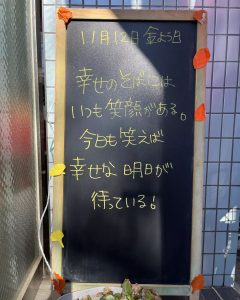 11月12日 金よう日
幸せのそばには
いつも笑顔がある。
今日も笑えば
幸せな明日が
待っている!